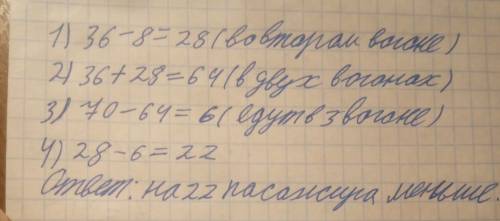 1) 36-8=28 (во втором вагоне)
2) 36+28=64 (в двух вагонах)
3) 70-64=6 (едут в 3 вагоне)
4) 28-6=22
Ответ: на 22 пасажира меньше.